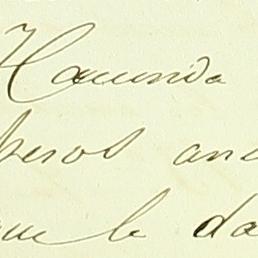 Hacienda
pesos and
que le da